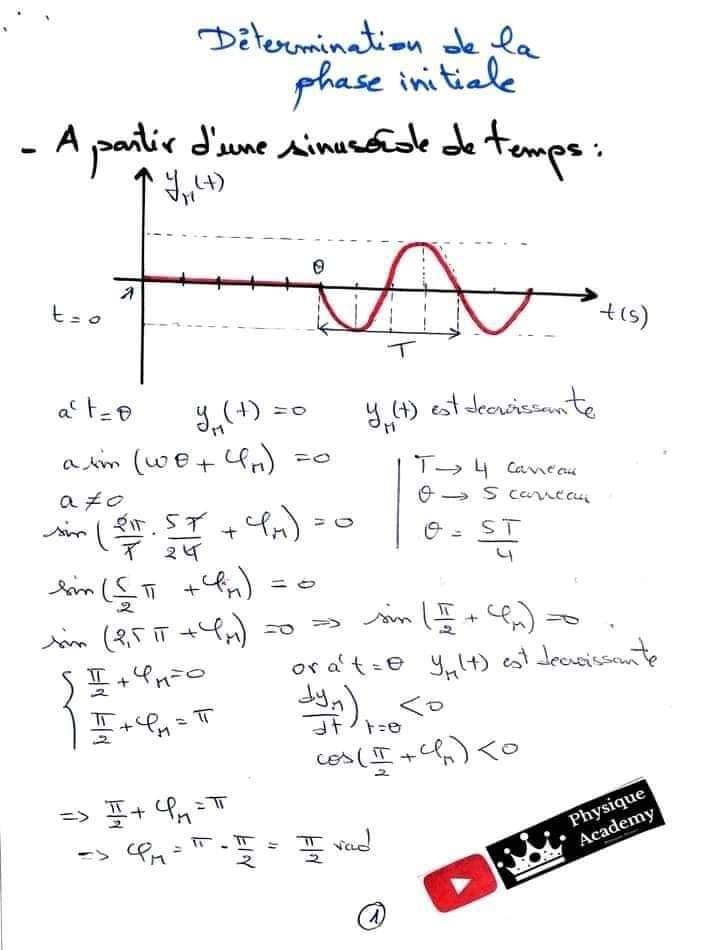 Détermination de la
phase initiale
- A partir d'une sinusoïde de temps :
y_M(t)
θ
t=0
t(s)
T
à t=θ y_M(t)=0 y_M(t) est decroissante
a sin (ωθ + φ_M) =0
T → 4 carreau
a≠0
θ → 5 carreau
sin (2π/T . 5T/4 + φ_M) = 0
θ = 5T/4
sin (5/2 π + φ_M) = 0
sin (2,5 π + φ_M) =0 => sin (π/2 + φ_M) =0 .
π/2 + φ_M =0 or à t=θ y_M(t) est decroissante
π/2 + φ_M = π dy_M/dt)t=θ <0
cos (π/2 + φ_M) <0
=> π/2 + φ_M = π
=> φ_M = π - π/2 = π/2 rad
Physique
Academy
1